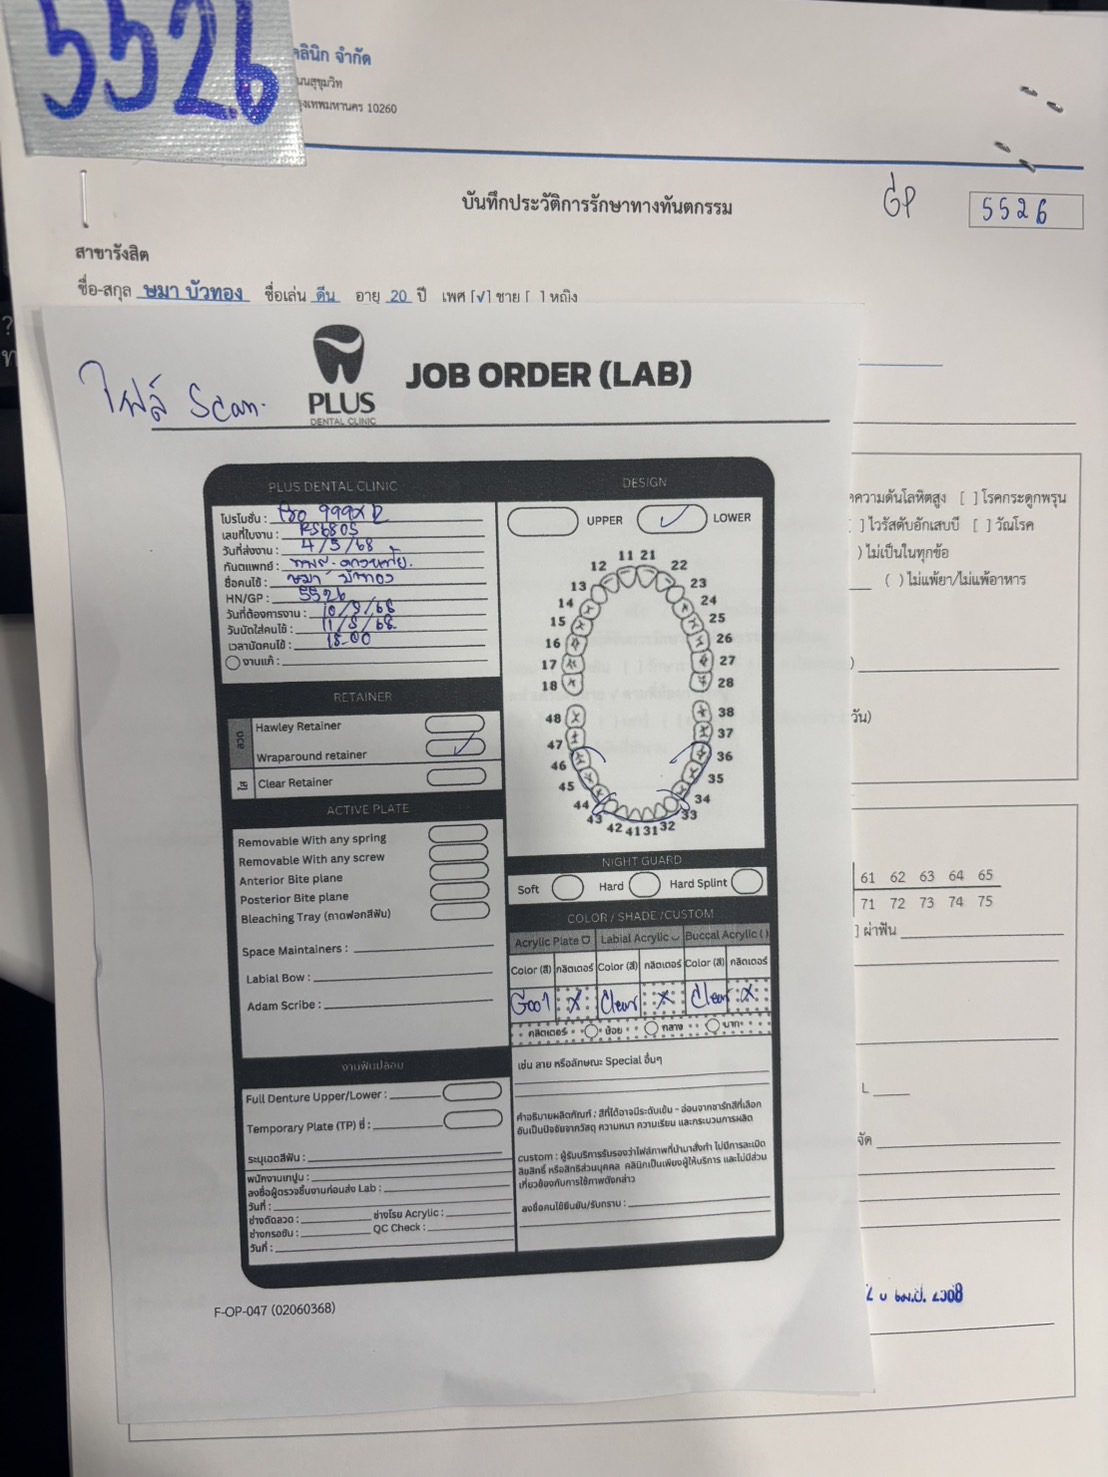 5526
คลินิก จำกัด
ถนนสุขุมวิท
กรุงเทพมหานคร 10260
บันทึกประวัติการรักษาทางทันตกรรม
GP
5526
สาขารังสิต
ชื่อ-สกุล ษมา บัวทอง ชื่อเล่น ดีน อายุ 20 ปี เพศ [√] ชาย [ ] หญิง
ไฟล์ Scan.
PLUS
DENTAL CLINIC
JOB ORDER (LAB)
PLUS DENTAL CLINIC
โปรโมชั่น : Pro 999x2
เลขที่ใบงาน : RS6805
วันที่ส่งงาน : 4/5/68
ทันตแพทย์ :
ชื่อคนไข้ : ษมา บัวทอง
HN/GP : 5526
วันที่ต้องการงาน : 10/5/68
วันนัดใส่คนไข้ : 11/5/68
เวลานัดคนไข้ : 18.00
งานแก้ :
RETAINER
ลวด
Hawley Retainer
Wraparound retainer ✓
ใส
Clear Retainer
ACTIVE PLATE
Removable With any spring
Removable With any screw
Anterior Bite plane
Posterior Bite plane
Bleaching Tray (ถาดฟอกสีฟัน)
Space Maintainers :
Labial Bow :
Adam Scribe :
งานฟันปลอม
Full Denture Upper/Lower :
Temporary Plate (TP) ซี่ :
ระบุเฉดสีฟัน :
พนักงานเทปูน :
ลงชื่อผู้ตรวจชิ้นงานก่อนส่ง Lab :
วันที่ :
ช่างดัดลวด : ช่างโรย Acrylic :
ช่างกรอขัด : QC Check :
วันที่ :
DESIGN
UPPER ✓ LOWER
11 21
12 22
13 23
14 24
15 25
16 26
17 27
18 28
48 38
47 37
46 36
45 35
44 34
43 33
42 41 31 32
NIGHT GUARD
Soft Hard Hard Splint
COLOR / SHADE /CUSTOM
Acrylic Plate Labial Acrylic Buccal Acrylic ( )
Color (สี) กลิตเตอร์ Color (สี) กลิตเตอร์ Color (สี) กลิตเตอร์
G001 X Clear X Clear X
กลิตเตอร์ น้อย กลาง มาก
เช่น ลาย หรือลักษณะ Special อื่นๆ
คำอธิบายผลิตภัณฑ์ : สีที่ได้อาจมีระดับเข้ม - อ่อนจากชาร์ทสีที่เลือก
อันเป็นปัจจัยจากวัสดุ ความหนา ความเรียบ และกระบวนการผลิต
custom : ผู้รับบริการรับรองว่าไฟล์ภาพที่นำมาสั่งทำ ไม่มีการละเมิด
ลิขสิทธิ์ หรือสิทธิส่วนบุคคล คลินิกเป็นเพียงผู้ให้บริการ และไม่มีส่วน
เกี่ยวข้องกับการใช้ภาพดังกล่าว
ลงชื่อคนไข้ยืนยัน/รับทราบ :
F-OP-047 (02060368)
ความดันโลหิตสูง [ ] โรคกระดูกพรุน
] ไวรัสตับอักเสบบี [ ] วัณโรค
) ไม่เป็นในทุกข้อ
( ) ไม่แพ้ยา/ไม่แพ้อาหาร
วัน)
61 62 63 64 65
71 72 73 74 75
] ผ่าฟัน
L